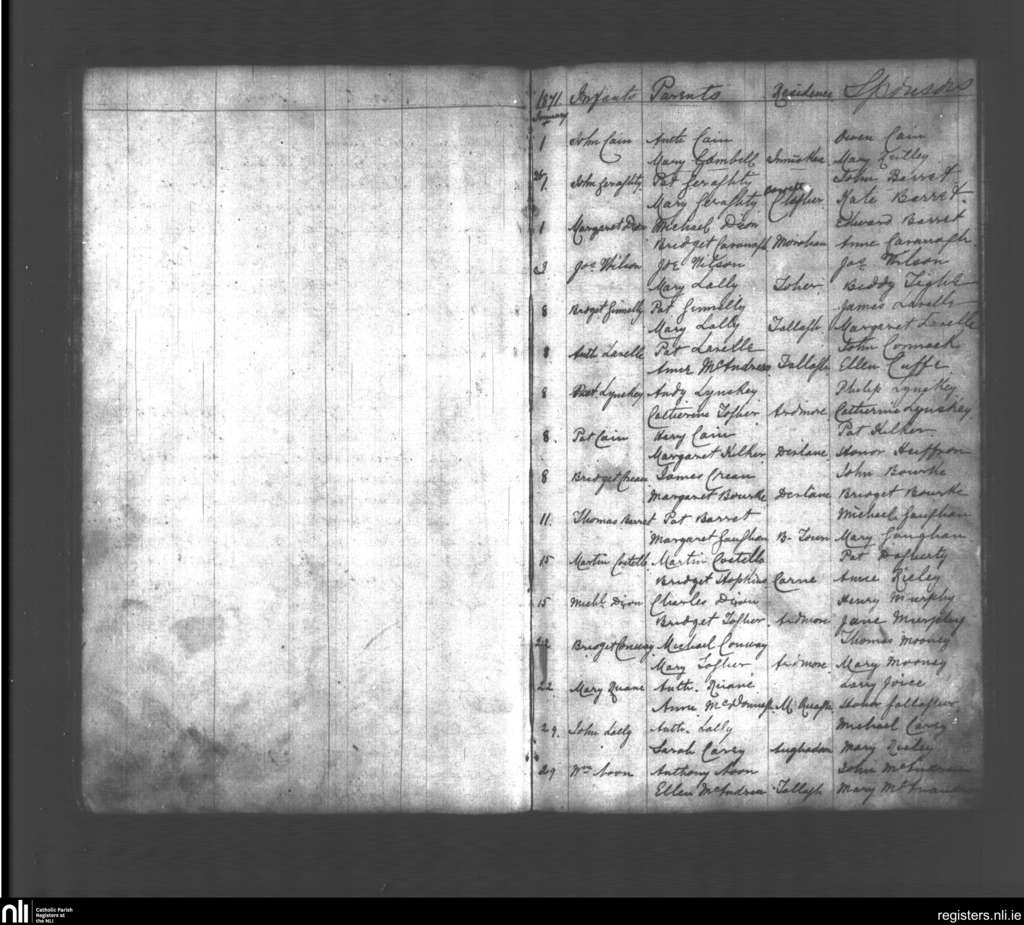 1871 Infants Parents Residence Sponsors
January
1 John Cain Anth Cain Owen Cain
Mary Gambell Mary
John Geraghty Pat Geraghty John Barret
Mary Geraghty Kate Barret.
1 Margaret Dixon Michael Dixon Edward Barret
Bridget Cavanagh Anne Cavanagh
3 Jos Wilson Joe Wilson Jos Wilson
Mary Lally Toher Biddy Tighe
8 Bridget Ginnelly Pat Ginnelly James Lavelle
Mary Lally Tallagh Margaret Lavelle
8 Anth Lavelle Pat Lavelle John Cormack
Anne McAndrew Tallagh Ellen Cuffe
8 Lynskey Andy Lynskey Philip Lynskey
Catherine Togher Ardmore Catherine Lynskey
8. Pat Cain Henry Cain Pat Kilker
Margaret Kilker Honor Heffron
8 Bridget Crean James Crean John Bourke
Margaret Bourke Bridget Bourke
11. Thomas Barret Pat Barret Michael Gaughan
Margaret Gaughan B. Town Mary Gaughan
15 Martin Costello Martin Costello Pat Dogherty
Bridget Hopkins Carne Anne
15 Michl. Dixon Charles Dixon Henry Murphy
Bridget Togher Ardmore Jane Murphy
22 Bridget Conway Michael Conway Thomas Mooney
Mary Togher Ardmore Mary Mooney
22 Mary Ruane Anth. Ruane Larry Joice
Anne McDonnell Honor Gallagher
29. John Lally Anth. Lally Michael Carey
Sarah Carey Aughadoon Mary
29 Wm Noon Anthony Noon John McAndrew
Ellen McAndrew Tallagh Mary
nli
Catholic Parish
Registers at
the NLI
registers.nli.ie